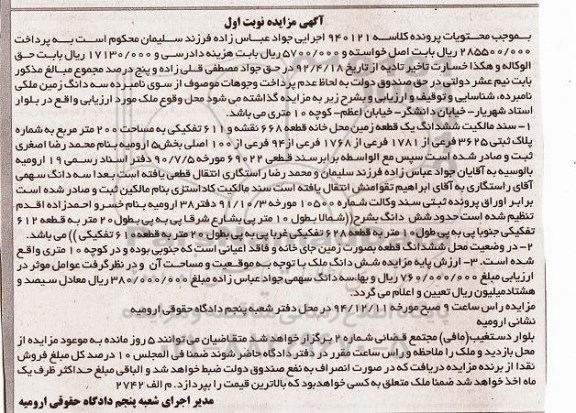 آگهی مزایده نوبت اول
بموجب محتویات پرونده کلاسه ۹۴۰۱۲۱ اجرایی جواد عباس زاده فرزند سلیمان محکوم است به پرداخت
۲۸۵۵۰۰/۰۰۰ ریال بابت اصل خواسته و ۵۷۰۰/۰۰۰ ریال بابت هزینه دادرسی و ۱۷۱۳۰/۰۰۰ ریال بابت حق
الوکاله و هکذا خسارت تاخیر تادیه از تاریخ ۹۲/۴/۱۸ در حق جواد مصطفی قلی زاده و پنج درصد مجموع مبالغ مذکور
بابت نیم عشر دولتی در حق صندوق دولت به لحاظ عدم پرداخت وجوهات موصوف از سوی نامبرده سه دانگ زمین ملکی
نامبرده، شناسایی و توقیف و ارزیابی و بشرح زیر به مزایده گذاشته می شود محل وقوع ملک مورد ارزیابی واقع در بلوار
استاد شهریار- خیابان دانشگر- خیابان اعظم- کوچه ۱۰ متری می باشد.
۱- سند مالکیت ششدانگ یک قطعه زمین محل خانه قطعه ۶۶۸ نقشه و ۶۱۱ تفکیکی به مساحت ۲۰۰ متر مربع به شماره
پلاک ثبتی ۳۶۲۵ فرعی از ۱۷۸۱ فرعی از ۱۷۶۸ فرعی از ۹۴ فرعی از ۱۰۰ اصلی بخش۵ ارومیه بنام محمد رضا اصغری
ثبت و صادر شده است سپس مع الواسطه برابرسند قطعی ۶۹۰۲۲ مورخه ۹۰/۷/۵ دفتر اسناد رسمی ۱۹ ارومیه
بالوسیه به آقایان جواد عباس زاده فرزند سلیمان و محمد رضا راستگاری انتقال قطعی یافته است بعدا سه دانگ سهمی
آقای راستگاری به آقای ابراهیم تقوامنش انتقال یافته است سند مالکیت کاداستری بنام مالکین ثبت و صادر شده است
برابر اوراق پرونده ثبتی سند وکالت شماره ۱۰۵۵۰ مورخه ۹۱/۱۰/۳ دفتر۳۸ ارومیه بنام خسرو احمدزاده اقدم
تنظیم شده است حدود شش دانگ بشرح((شمالا بطول ۱۰ متر پی بشارع شرقا پی به پی بطول ۲۰ متر به قطعه ۶۱۲
تفکیکی جنوبا پی به پی طول ۱۰ متر به قطعه ۶۲۸ تفکیکی غربا پی به پی بطول ۲۰ متر به قطعه ۶۱۰ تفکیکی )) می باشد.
۲- در وضعیت محل ششدانگ قطعه بصورت زمین جای خانه و فاقد اعیانی است که جنوبی بوده و در کوچه ۱۰ متری واقع
شده است. ۳- ارزش پایه مزایده شش دانگ ملک با توجه به موقعیت و مساحت آن و در نظر گرفت عوامل موثر در
ارزیابی مبلغ ۷۶۰/۰۰۰/۰۰۰ ریال و بهاء سه دانگ سهمی جواد عباس زاده مبلغ ۳۸۰/۰۰۰/۰۰۰ ریال معادل سیصد و
هشتادمیلیون ریال تعیین و اعلام می گردد.
مزایده راس ساعت ۹ صبح مورخه ۹۴/۱۲/۱۱ در محل دفتر شعبه پنجم دادگاه حقوقی ارومیه
نشانی ارومیه
بلوار دستغیب(مافی) مجتمع قضائی شماره ۲ برگزار خواهد شد متقاضیان می توانند ۵ روز مانده به موعود مزایده از
محل بازدید و ملک را ملاحظه و راس ساعت مقرر در دفتر دادگاه حاضر شوند ضمنا فی المجلس ۱۰ درصد کل مبلغ فروش
نقدا از برنده مزایده دریافت که در صورت انصراف به نفع صندوق دولت ضبط خواهد شد و الباقی مبلغ حداکثر ظرف یک
ماه اخذ خواهد شد ضمنا ملک متعلق به کسی خواهدبود که بالاترین قیمت را بپردازد. م الف ۲۷۴۲
مدیر اجرای شعبه پنجم دادگاه حقوقی ارومیه